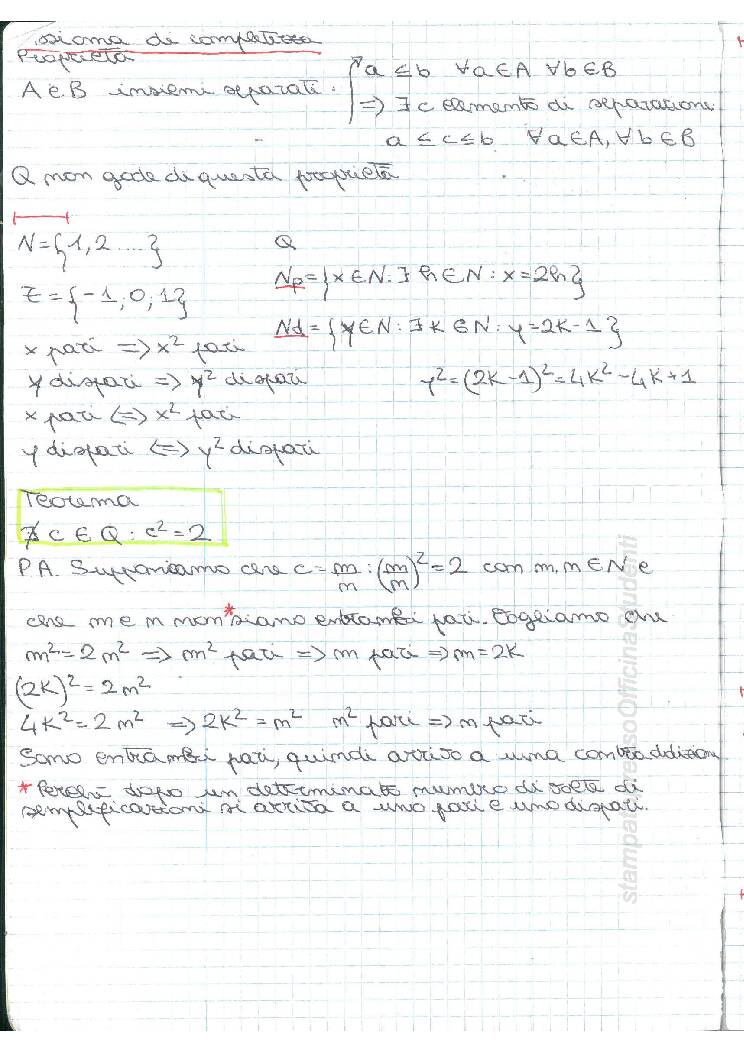 ssioma di completezza
Proprietà
A e B insiemi separati. a ≤ b ∀a∈A ∀b∈B
=> ∃ c elemento di separazione
a ≤ c ≤ b ∀a∈A, ∀b∈B
Q non gode di questa proprietà
N={1,2 ....} Q
Np={x∈N: ∃ h∈N: x=2h}
Z={-1,0,1}
Nd={y∈N: ∃ k∈N: y=2k-1}
x pari => x² pari
y dispari => y² dispari y²=(2k-1)²=4k²-4k+1
x pari <=> x² pari
y dispari <=> y² dispari
Teorema
∄ c ∈ Q : c²=2
P.A. Supponiamo che c=m/n : (m/n)²=2 con m,n∈N e
che m e n non*siano entrambi pari. Vogliamo che
m²=2n² => m² pari => m pari => m=2k
(2k)²=2n²
4k²=2n² => 2k²=n² n² pari => n pari
Sono entrambi pari, quindi arrivo a una contraddizion
*Perché dopo un determinato numero di volte di
semplificazioni si arriva a uno pari e uno dispari.
stampato presso Officina Studenti